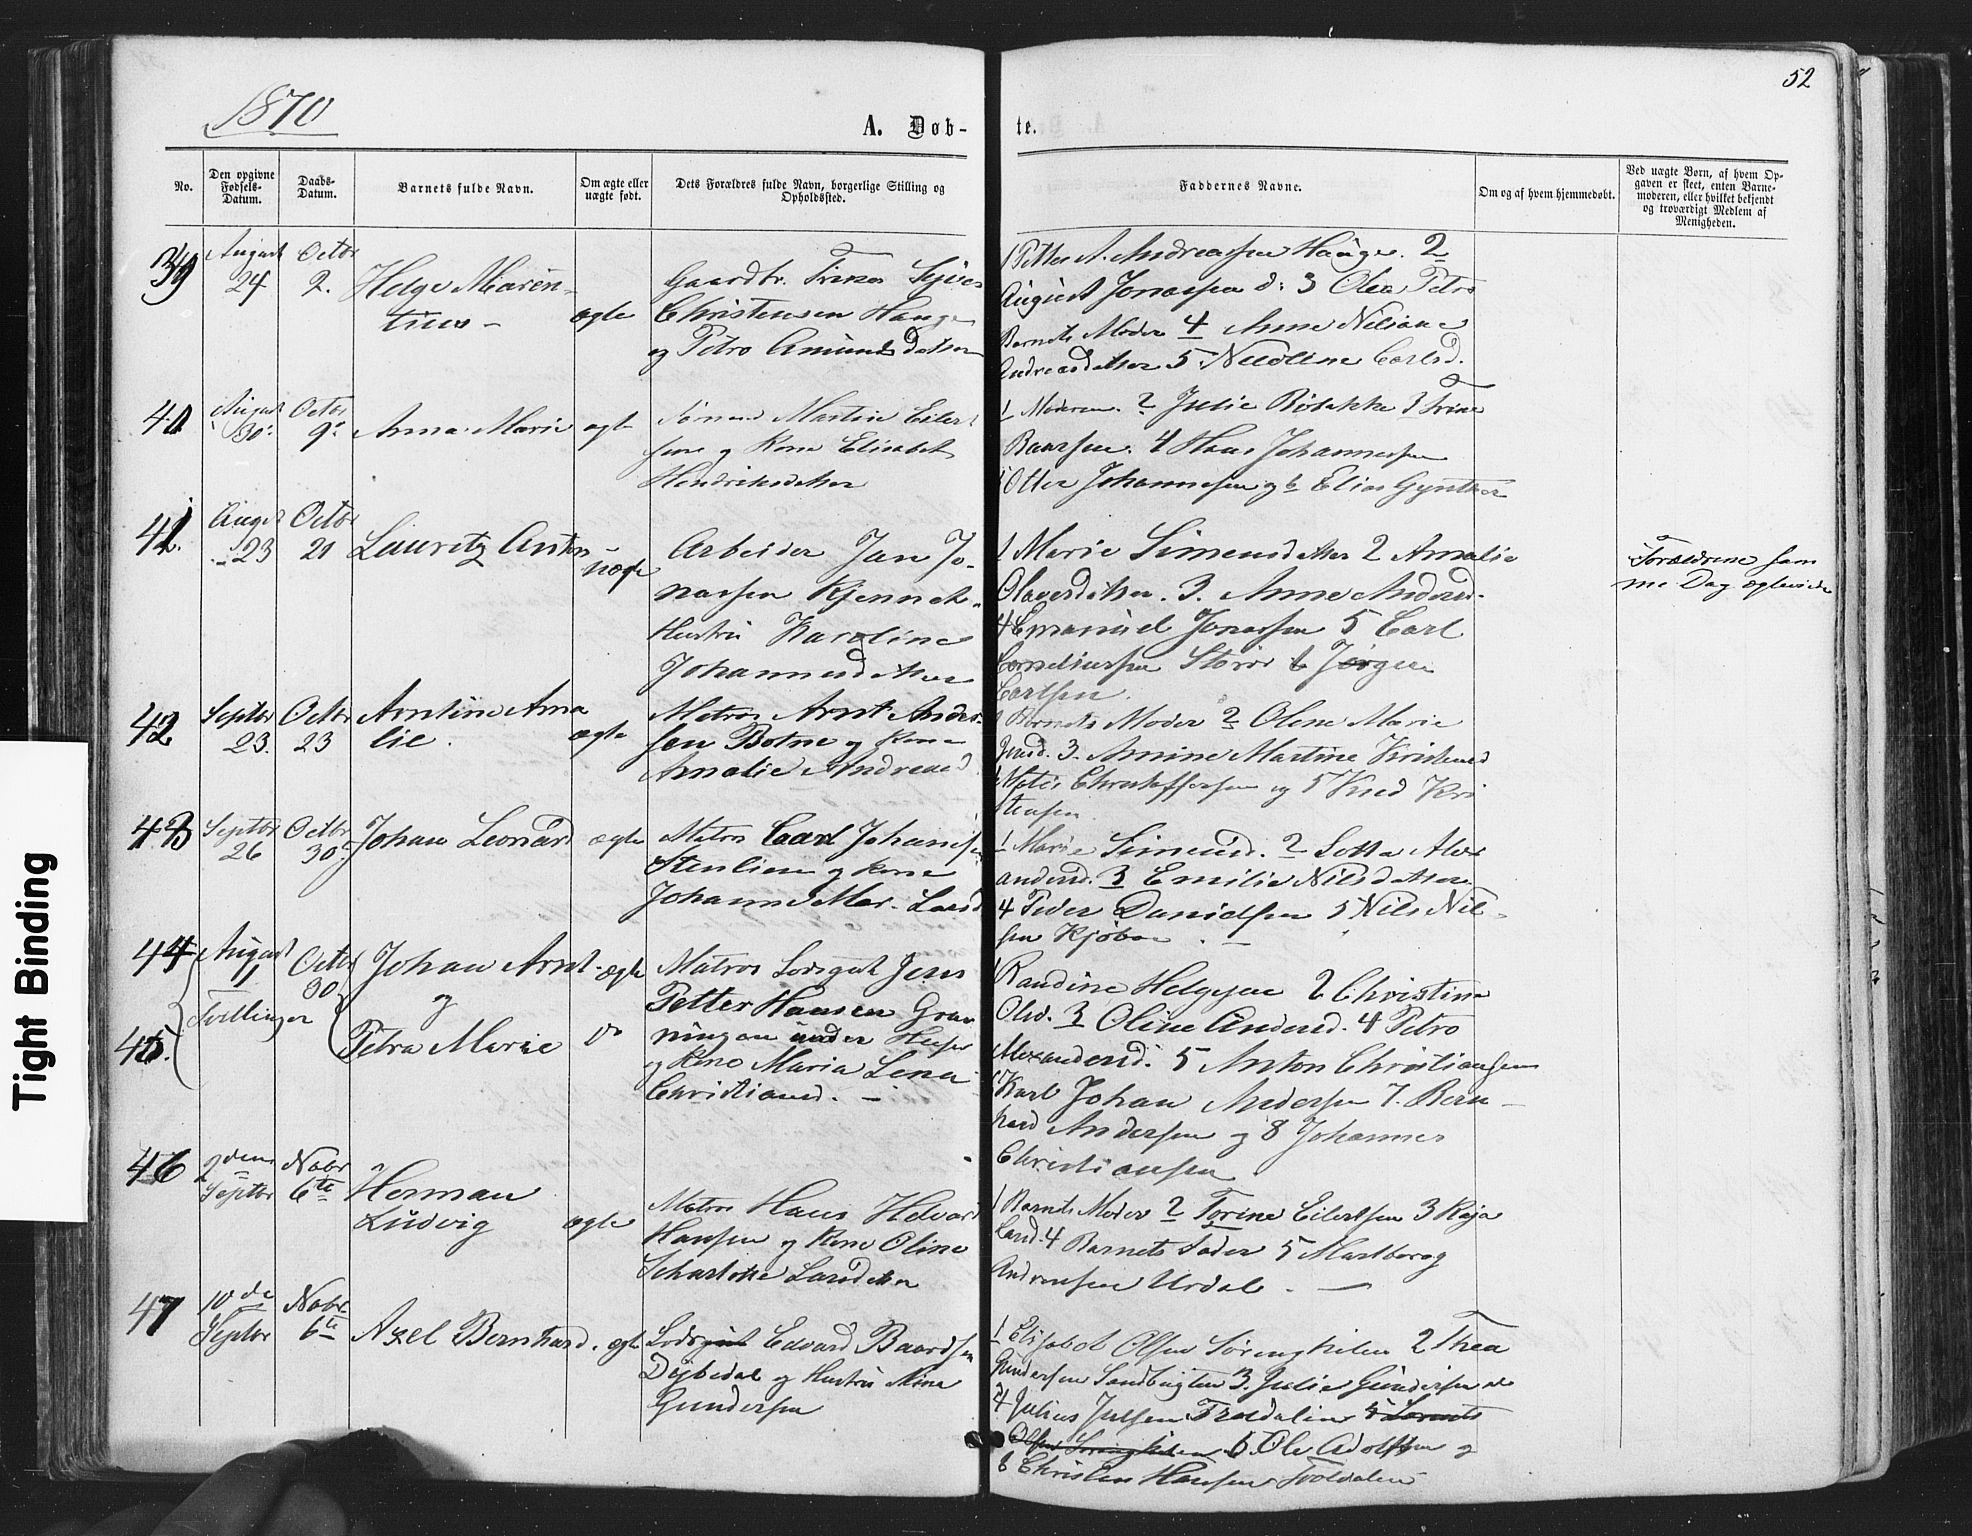 1870
A. Døb-
te.
52
No.
Den opgivne Fødsels-Datum.
Daabs-Datum.
Barnets fulde Navn.
Om ægte eller uægte født.
Dets Forældres fulde Navn, borgerlige Stilling og Opholdssted.
Faddernes Navne.
Om og af hvem hjemmedøbt.
Ved uægte Børn, af hvem Op-
gaven er skeet, enten Barne-
moderen, eller hvilket bekjendt
og troværdigt Medlem af
Menigheden.
39
August 24
Octbr 2.
Helge Maren-
tius -
ægte
Gaardbr.
Christensen Hauge
og Petro Amundsdatter
1 Petter A. Andreassen Hauge. 2
August Jonassen d: 3 Olea Petro
Barnets Moder 4 Anne Nilsine
Andreasdatter 5 Carlsd.
40
August 30
Octbr 9
Anna Marie
ægte
Martin Eilert
sen og Kone Elisabet
Hendriksdatter
1 Moderen. 2 Julie 3 Trine
Baarsen. 4 Hans Johannesen
Otter Johannesen og 6 Elias Gynther
41.
August 23
Octbr 21
Lauritz Anton -
uægte
Arbeider Jan Jo-
nassen
Hustru Karoline
Johannesdatter
1 Marie Simensdatter 2 Amalie
Olavesdatter. 3. Anne Andersd.
4 Emanuel Jonassen 5 Carl
Corneliussen 6 Jørgen
Carlsen.
Forældrene sam
me Dag ægteviede
42
Septbr 23.
Octbr 23
Arntine Ama
lie.
ægte
Matros Arnt Ander-
sen Botne og Kone
Amalie Andreasd
1 Barnets Moder 2 Olene Marie
Jensd. 3. Amine Martine
4 Christoffersen og 5 Knud Kri
stensen
43
Septbr 26
Octbr 30
Johan Leonard
ægte
Matros Carl Johansen
Stenlien og Kone
Johanne Mar. Larsd
1 Marie Simensd. 2 Lotta Alex
andersd. 3 Emilie Nilsdatter
4 Peder Danielsen 5 Nils Nil-
sen
44
August 11
Octbr 30
Johan Arnt
ægte
og
Tvillinger
45.
Petra Marie
do
Matros Jens
Petter Hansen Grøn
ningen under
og Kone Maria Lena
Christiansd. -
Randine Helgesen 2 Christine
Olsd. 3 Oline Andersd. 4 Petro
Alexandersd. 5 Anton Christiansen
Karl Johan Andersen 7. Bern-
hard Andersen og 8 Johannes
Christiansen
46
2den Septbr
Novbr 6te
Herman
Ludvig
ægte
Matros Hans
Hansen og Kone Oline
Scharlotte Larsdatter
1 Barnets Moder 2 Torine Eilertsen 3 Kaja
Larsd. 4 Barnets Fader 5
Andreasen Urdal. -
47
10de Septbr
Novbr 6te
Axel Bernhard.
ægte
Edvard Baardsen
Dybedal og Hustru
Gundersen
1 Elisabet Olsen Sørengkilen 2 Thea
Gundersen Sandbugten 3. Julie Gundersen
4 Julius Julsen
Olsen 5. Ole Adolfsen og
6 Christen Hansen
Tight Binding